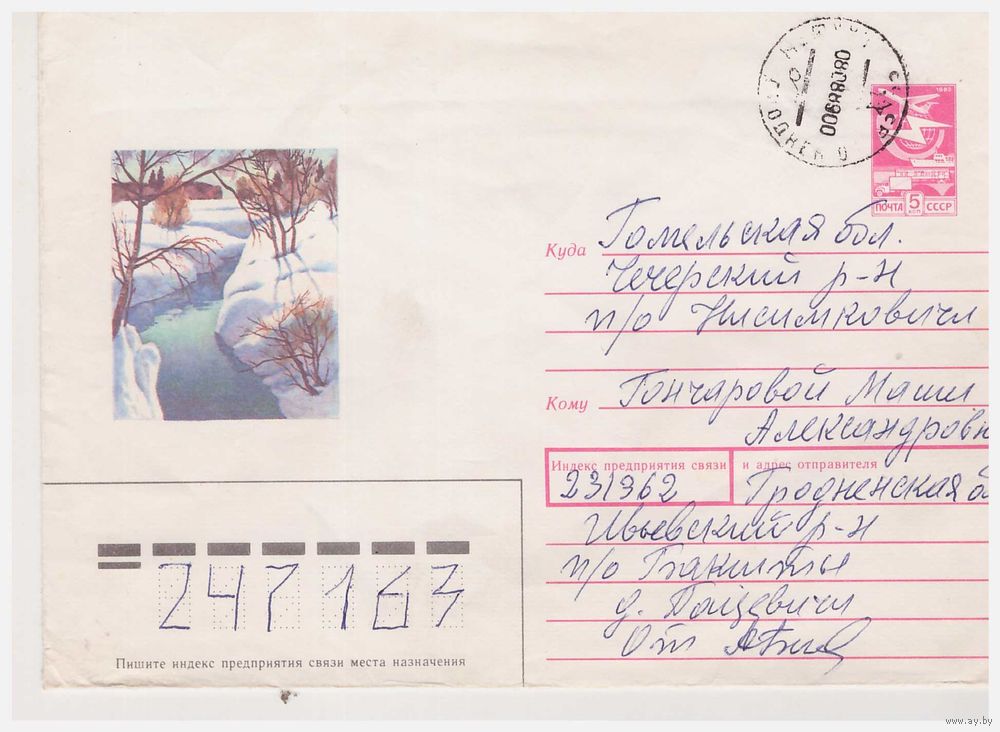 1982
ПОЧТА 5 КОП СССР
Куда Гомельская обл.
Чечерский р-н
п/о Нисимковичи
Кому Гончаровой Маши
Александровн
Индекс предприятия связи и адрес отправителя
231962 Гродненская об
Ивьевский р-н
п/о Бакшты
д.
От
247163
Пишите индекс предприятия связи места назначения
www.ay.by